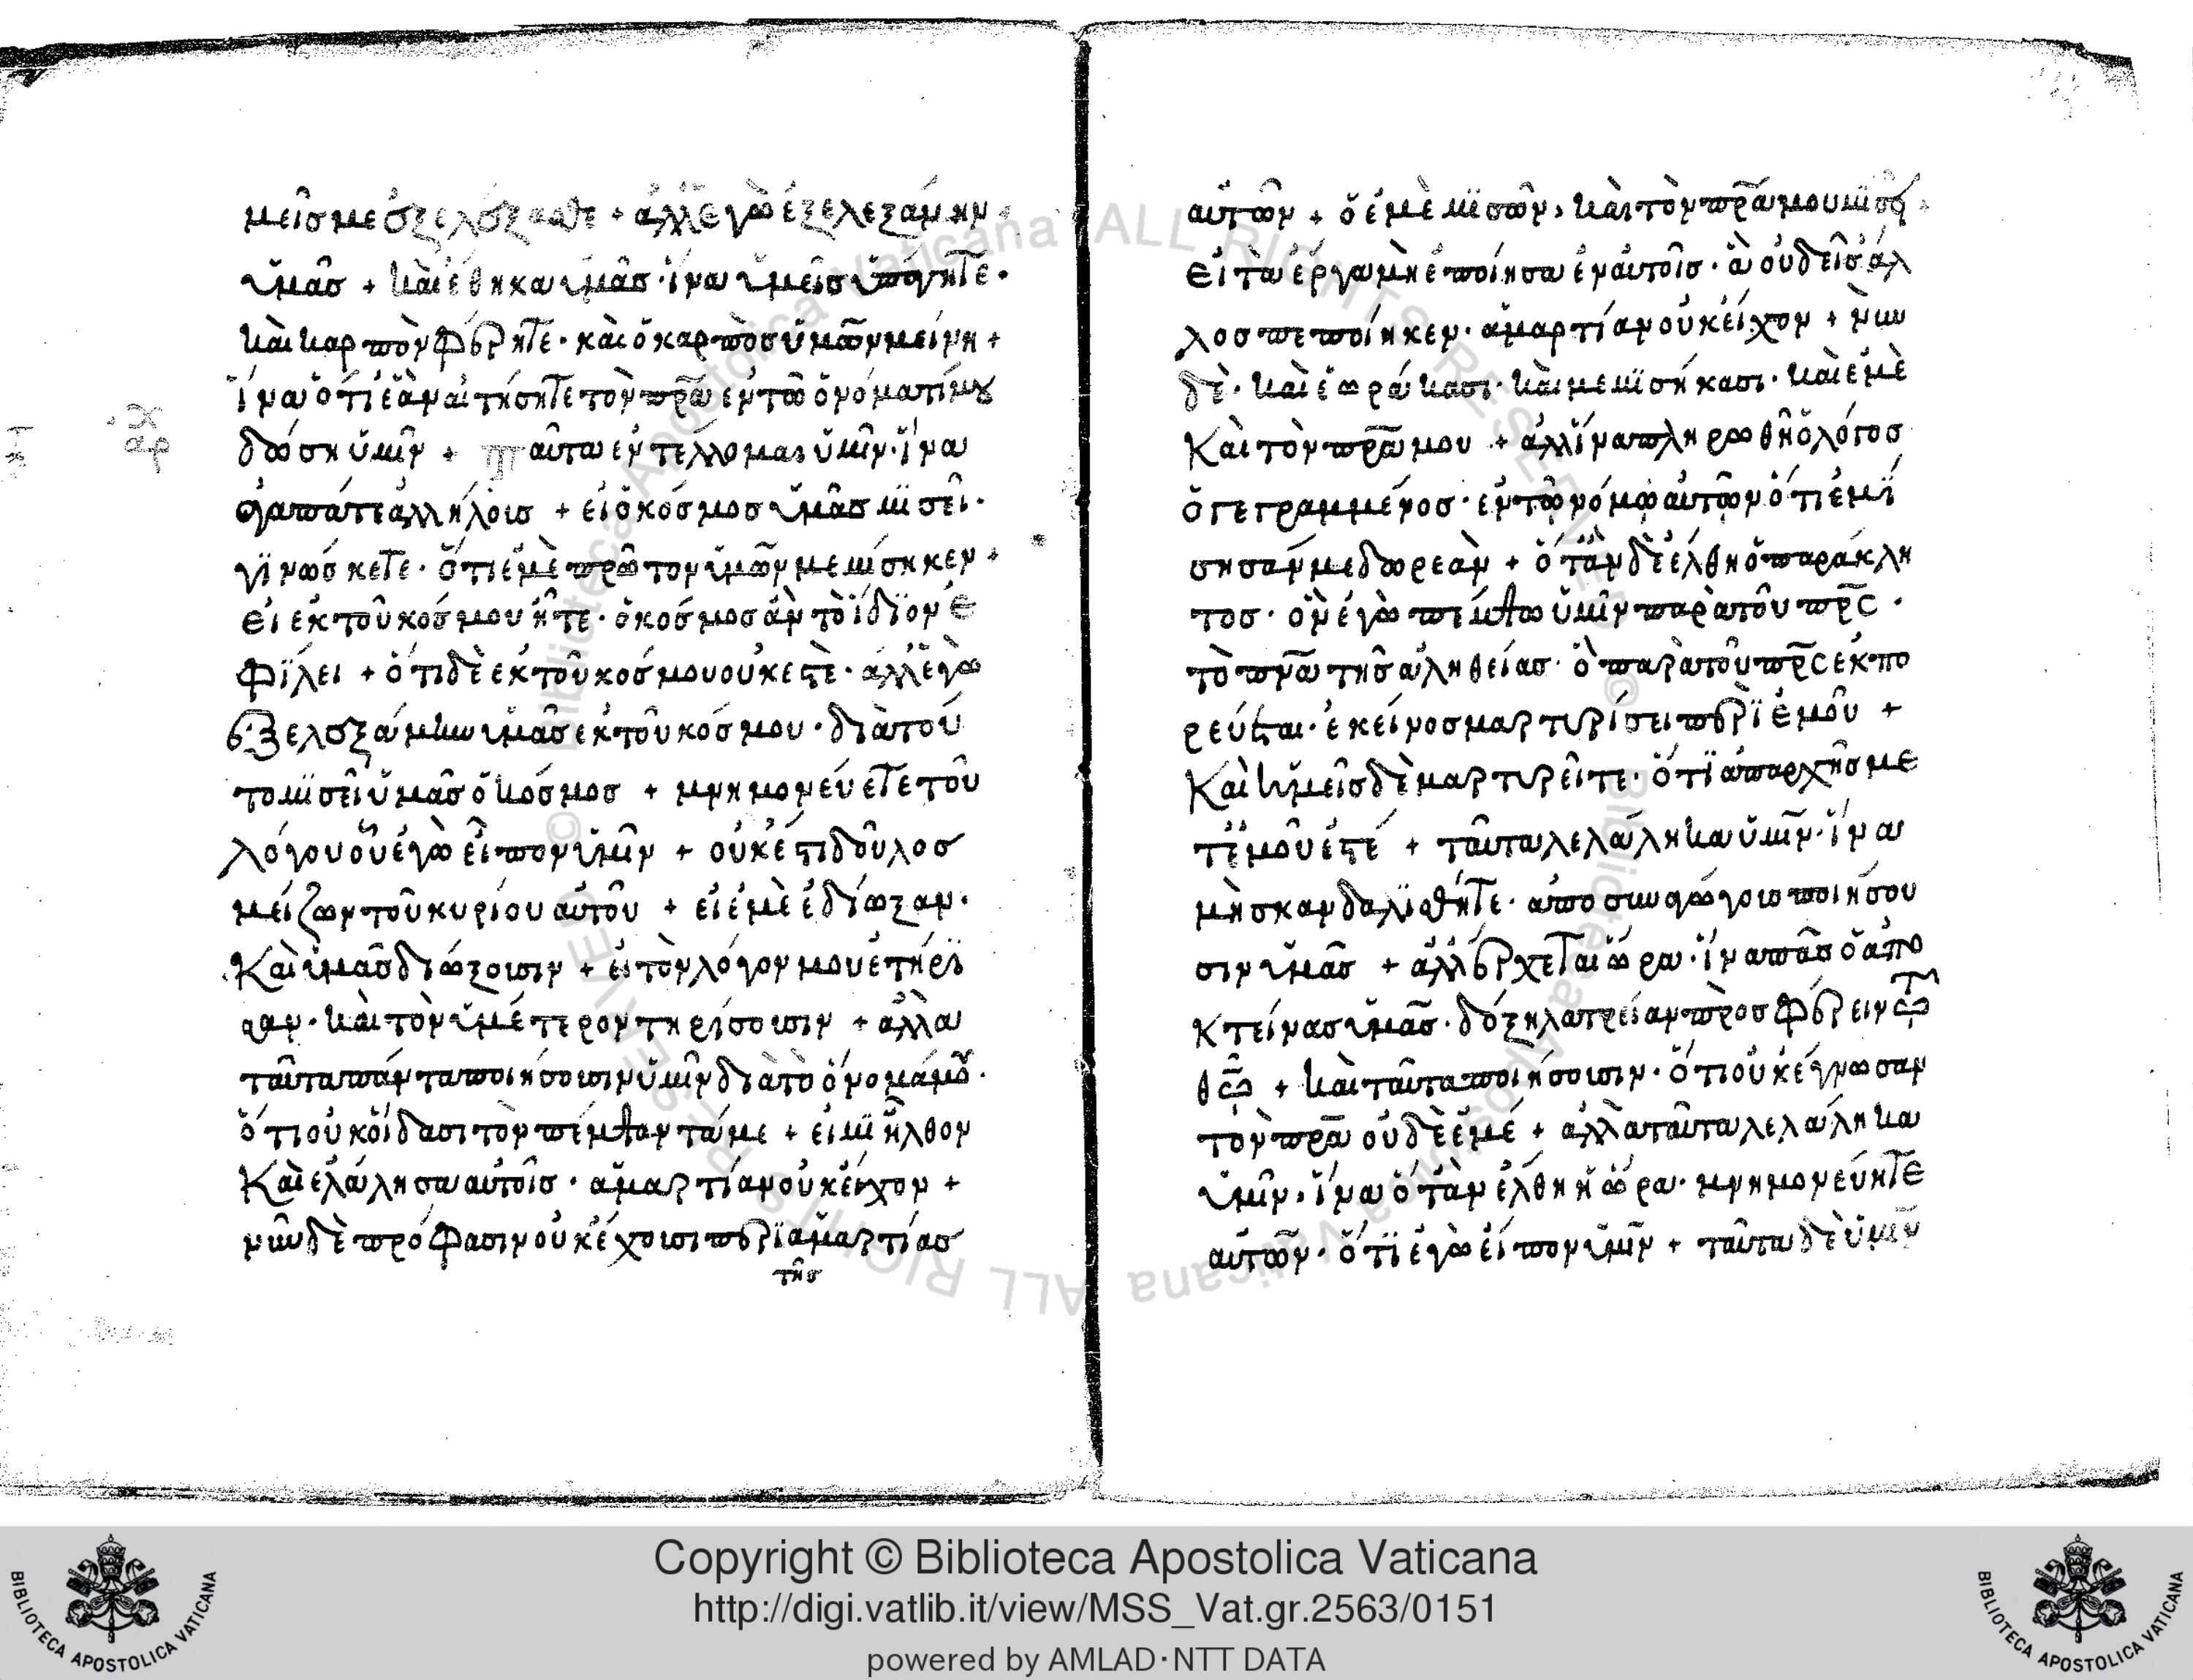 μεῖσ με ἐξελέξασθε + ἀλλ' ἐγὼ ἐξελεξάμην
ὑμᾶσ + καὶ ἔθηκα ὑμᾶσ · ἵνα ὑμεῖσ ὑπάγητε ·
καὶ καρπὸν φέρητε · καὶ ὁ καρπὸσ ὑμῶν μείνη +
ἵνα ὅτι ἐὰν αἰτήσητε τὸν πρ̅α̅ ἐν τῶ ὀνόματί μου
δώση ὑμῖν + ταῦτα ἐντέλλομαι ὑμῖν · ἵνα
ἀγαπάτε ἀλλήλουσ + εἰ ὁ κόσμοσ ὑμᾶσ μισεῖ ·
γϊνώσκετε · ὅτι ἐμὲ πρῶτον ὑμῶν μεμίσηκεν +
εἰ ἐκ τοῦ κόσμου ἦτε · ὁ κόσμοσ ἂν τὸ ἴδϊον ἐ
φΐλει + ὅτι δὲ ἐκ τοῦ κόσμου οὐκ ἐστὲ · ἀλλ' ἐγὼ
ἐξελεξάμην ὑμᾶσ ἐκ τοῦ κόσμου · διὰ τοῦ
το μϊσεῖ ὑμᾶσ ὁ κόσμοσ + μνημονεύετε τοῦ
λόγου οὗ ἐγὼ εἶπον ὑμῖν + οὐκ ἔστι δοῦλοσ
μείζων τοῦ κυρίου αὐτοῦ + εἰ ἐμὲ ἐδίωξαν ·
καὶ ὑμᾶσ διώξουσιν + εἰ τὸν λόγον μου ἐτήρϊ
σαν · καὶ τὸν ὑμέτερον τηρίσουσιν + ἀλλὰ
ταῦτα πάντα ποιήσουσιν ὑμῖν διὰ τὸ ὄνομά μου ·
ὅτι οὐκ οἴδασι τὸν πέμψαντά με + εἰ μϊ ἦλθον
καὶ ἐλάλησα αὐτοῖσ · ἁμαρτίαν οὐκ εἶχον +
νῦν δὲ πρόφασιν οὐκ ἔχουσι περϊ ἁμαρτίασ
τῆσ
αὐτῶν + ὁ ἐμὲ μϊσῶν, καὶ τὸν πρ̅α̅ μου μϊσεῖ
εἰ τὰ ἔργα μὴ ἐποίησα ἐν αὐτοῖσ · ἃ οὐδεὶσ ἄλ
λοσ πεποίηκεν · ἁμαρτίαν οὐκ εἶχον + νῦν
δὲ · καὶ ἑωράκασι · καὶ μεμϊσήκασι · καὶ ἐμὲ
καὶ τὸν πρ̅α̅ μου + ἀλλ' ἵνα πληρωθῆ ὁ λόγοσ
ὁ γεγραμμένοσ · ἐν τῶ νόμω αὐτῶν ὅτι ἐμΐ
σησάν με δωρεὰν + ὅταν δὲ ἔλθη ὁ παράκλη
τοσ · ὃν ἐγὼ πέμψω ὑμῖν παρὰ τοῦ πρ̅ς̅ ·
τὸ πν̅α̅ τῆσ ἀληθείασ · ὃ παρὰ τοῦ πρ̅ς̅ ἐκπο
ρεύεται · ἐκεῖνοσ μαρτυρίσει περϊ ἐμοῦ +
καὶ ὑμεῖσ δὲ μαρτυρεῖτε · ὅτϊ ἀπαρχῆσ με
τ' ἐμοῦ ἐστέ + ταῦτα λελάληκα ὑμῖν · ἵνα
μὴ σκανδαλϊσθῆτε · ἀποσυναγώγουσ ποιήσου
σιν ὑμᾶσ + ἀλλ' ἔρχεται ὥρα · ἵνα πᾶσ ὁ ἀπο
κτείνασ ὑμᾶσ · δόξη λατρείαν προσφέρειν τῶ
θ̅ω̅ + καὶ ταῦτα ποιήσουσιν · ὅτι οὐκ ἔγνωσαν
τὸν πρ̅α̅ οὐδὲ ἐμέ + ἀλλὰ ταῦτα λελάληκα
ὑμῖν, ἵνα ὅταν ἔλθη ἡ ὥρα · μνημονεύητε
αὐτῶν · ὅτϊ ἐγὼ εἶπον ὑμῖν + ταῦτα δὲ ὑμῖν
Copyright © Biblioteca Apostolica Vaticana
http://digi.vatlib.it/view/MSS_Vat.gr.2563/0151
powered by AMLAD·NTT DATA
BIBLIOTECA APOSTOLICA VATICANA
BIBLIOTECA APOSTOLICA VATICANA